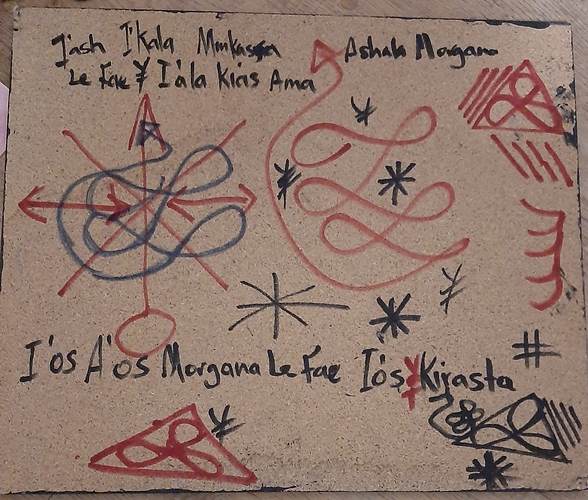 I'ash I'kala Ashala Morgana
Le Fae ¥ I'ala Kias Ama
I'os A'os Morgana Le Fae Iós ¥ Kijasta